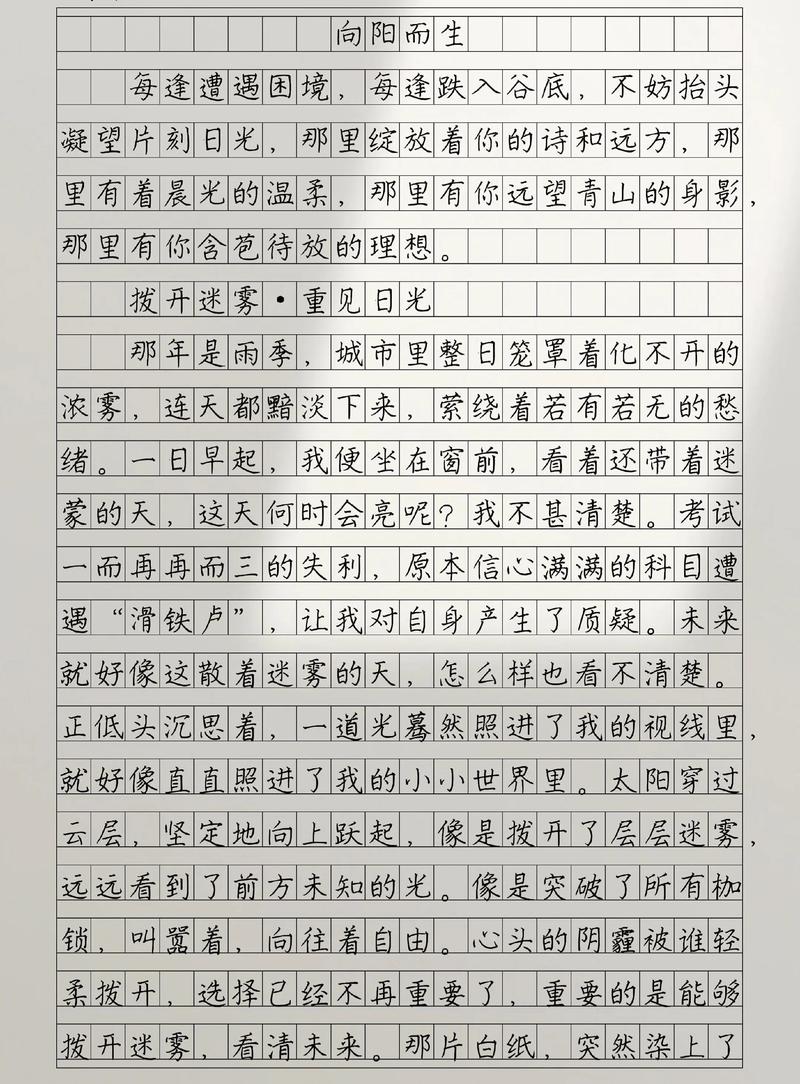 向阳而生
每逢遭遇困境，每逢跌入谷底，不妨抬头
凝望片刻日光，那里绽放着你的诗和远方，那
里有着晨光的温柔，那里有你远望青山的身影，
那里有你含苞待放的理想。
拨开迷雾·重见日光
那年是雨季，城市里整日笼罩着化不开的
浓雾，连天都黯淡下来，萦绕着若有若无的愁
绪。一日早起，我便坐在窗前，看着还带着迷
蒙的天，这天何时会亮呢？我不甚清楚。考试
一而再再而三的失利，原本信心满满的科目遭
遇“滑铁卢”，让我对自身产生了质疑。未来
就好像这散着迷雾的天，怎么样也看不清楚。
正低头沉思着，一道光蓦然照进了我的视线里，
就好像直直照进了我的小小世界里。太阳穿过
云层，坚定地向上跃起，像是拨开了层层迷雾，
远远看到了前方未知的光。像是突破了所有枷
锁，叫嚣着，向往着自由。心头的阴霾被谁轻
柔拨开，选择已经不再重要了，重要的是能够
拨开迷雾，看清未来。那片白纸，突然染上了